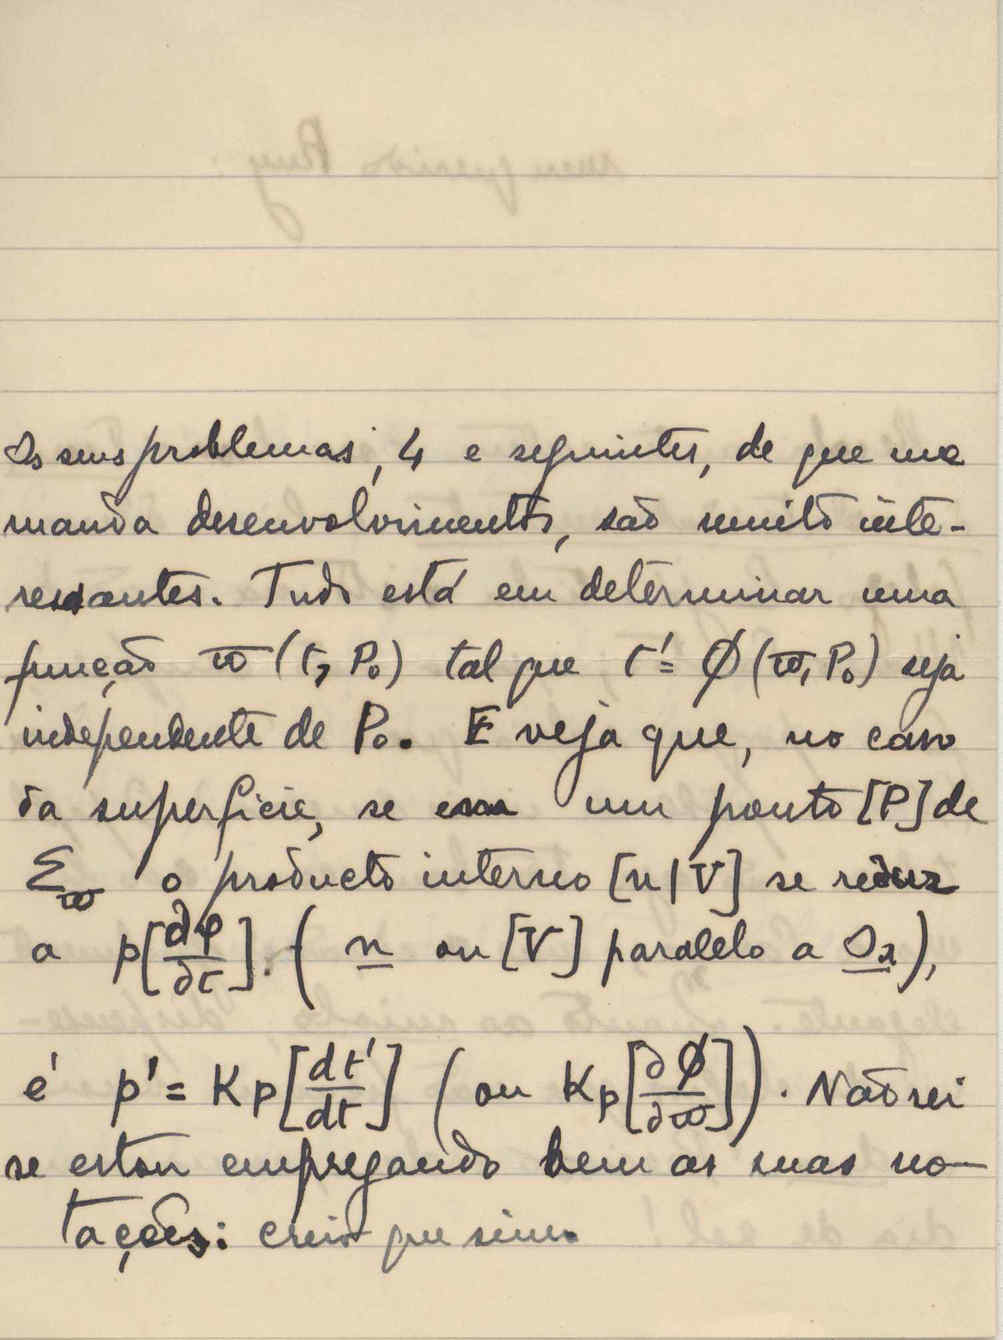 Os seus problemas, 4 e seguintes, de que me
manda desenvolvimentos, são muito inte-
ressantes. Tudo está em determinar uma
função ϖ(t, P₀) tal que t' = Ø(ϖ, P₀) seja
independente de P₀. E veja que, no caso
da superficie, se em um ponto [P] de
Σϖ o producto interno [n|V] se reduz
a p[∂φ/∂t]. (n ou [V] paralelo a Ox),
é p' = Kp[dt'/dt] (ou Kp[∂Ø/∂ϖ]). Não sei
se estou empregando bem as suas no-
tações: creio que sim.